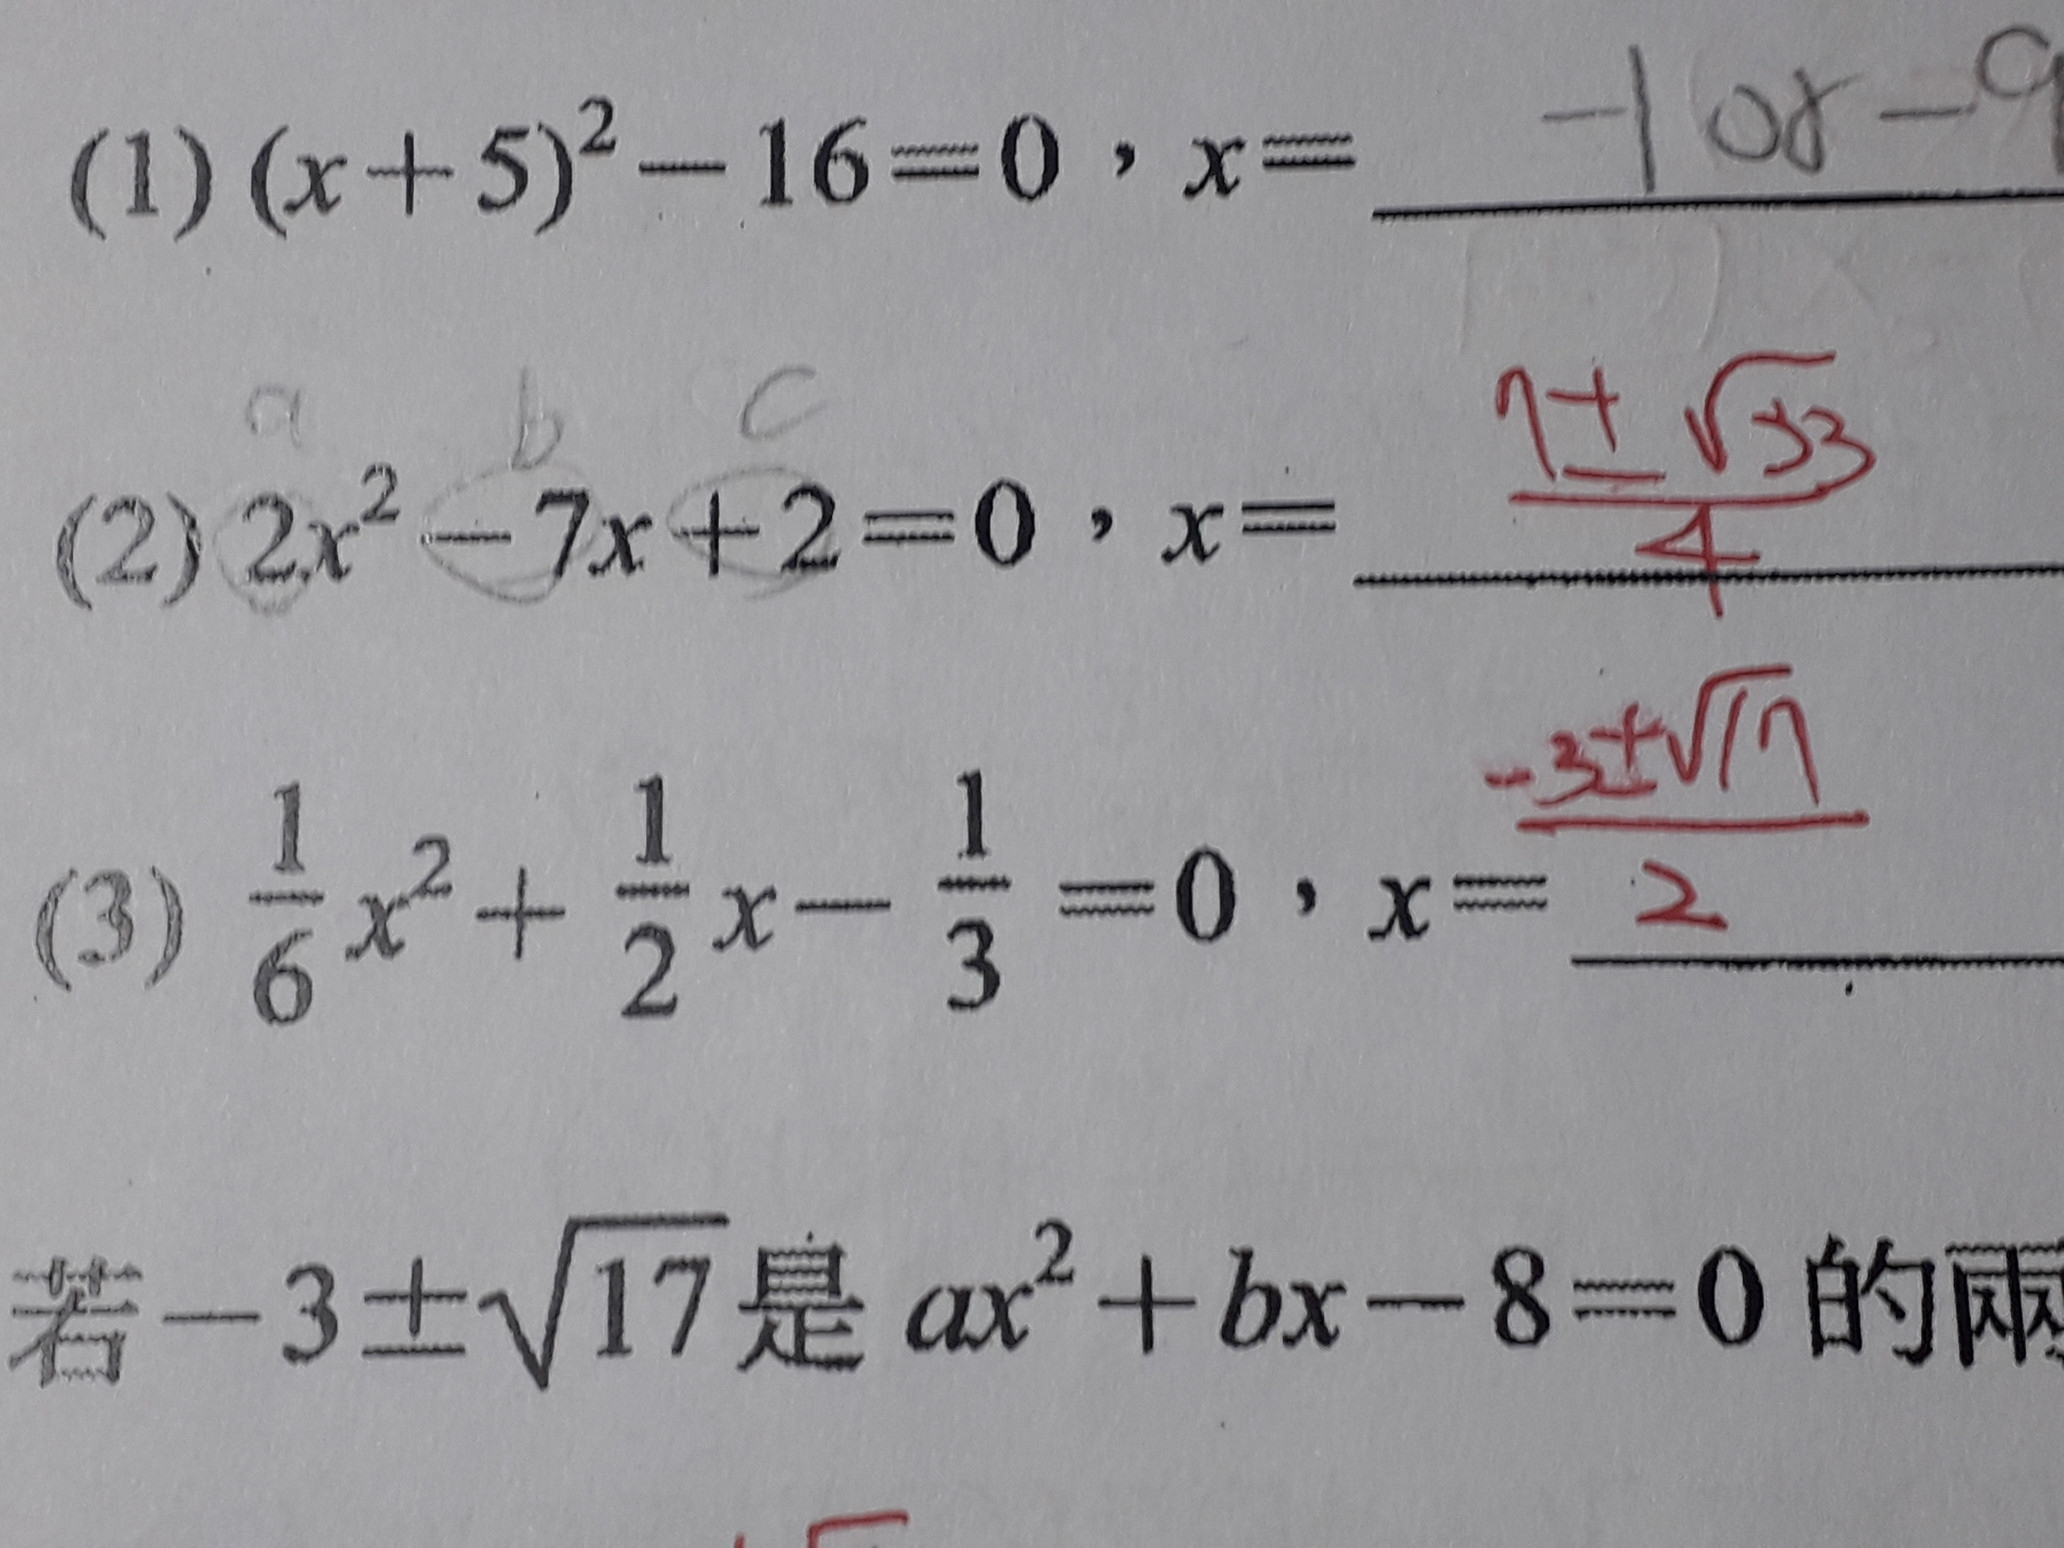 (1) (x+5)²-16=0，x= -1 or -9
a b c
(2) 2x²-7x+2=0，x= (7±√33)/4
(3) 1/6 x²+1/2 x-1/3=0，x= (-3±√17)/2
若-3±√17是 ax²+bx-8=0 的兩